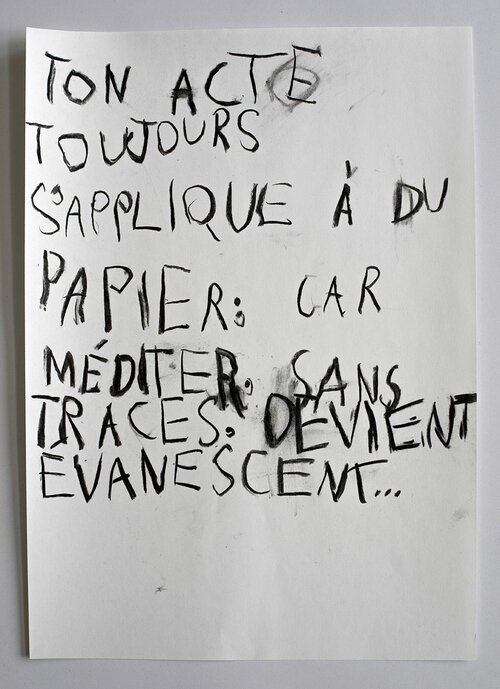 TON ACTE
TOUJOURS
S'APPLIQUE À DU
PAPIER: CAR
MÉDITER, SANS
TRACES, DEVIENT
EVANESCENT...